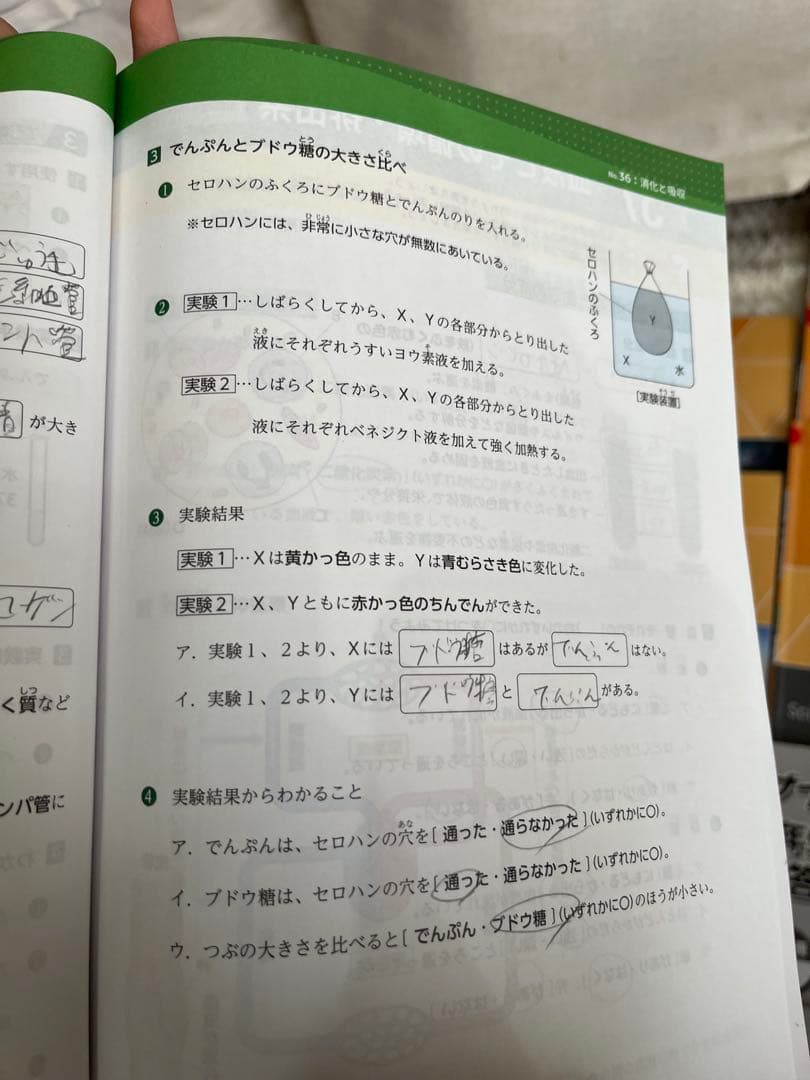 No.36：消化と吸収
3 でんぷんとブドウ糖の大きさ比べ
とう
くら
❶ セロハンのふくろにブドウ糖とでんぷんのりを入れる。
※セロハンには、非常に小さな穴が無数にあいている。
ひじょう
セロハンのふくろ
Y
X
水
[実験装置]
そうち
❷ 実験1…しばらくしてから、X、Yの各部分からとり出した
液にそれぞれうすいヨウ素液を加える。
えき
そ
実験2…しばらくしてから、X、Yの各部分からとり出した
液にそれぞれベネジクト液を加えて強く加熱する。
❸ 実験結果
実験1…Xは黄かっ色のまま。Yは青むらさき色に変化した。
実験2…X、Yともに赤かっ色のちんでんができた。
ア．実験1、2より、Xには ブドウ糖 はあるが でんぷん はない。
イ．実験1、2より、Yには ブドウ糖 と でんぷん がある。
❹ 実験結果からわかること
あな
ア．でんぷんは、セロハンの穴を[ 通った・通らなかった ](いずれかに○)。
イ．ブドウ糖は、セロハンの穴を[ 通った・通らなかった ](いずれかに○)。
ウ．つぶの大きさを比べると[ でんぷん・ブドウ糖 ](いずれかに○)のほうが小さい。
が大き
しつ
く質など
ンパ管に